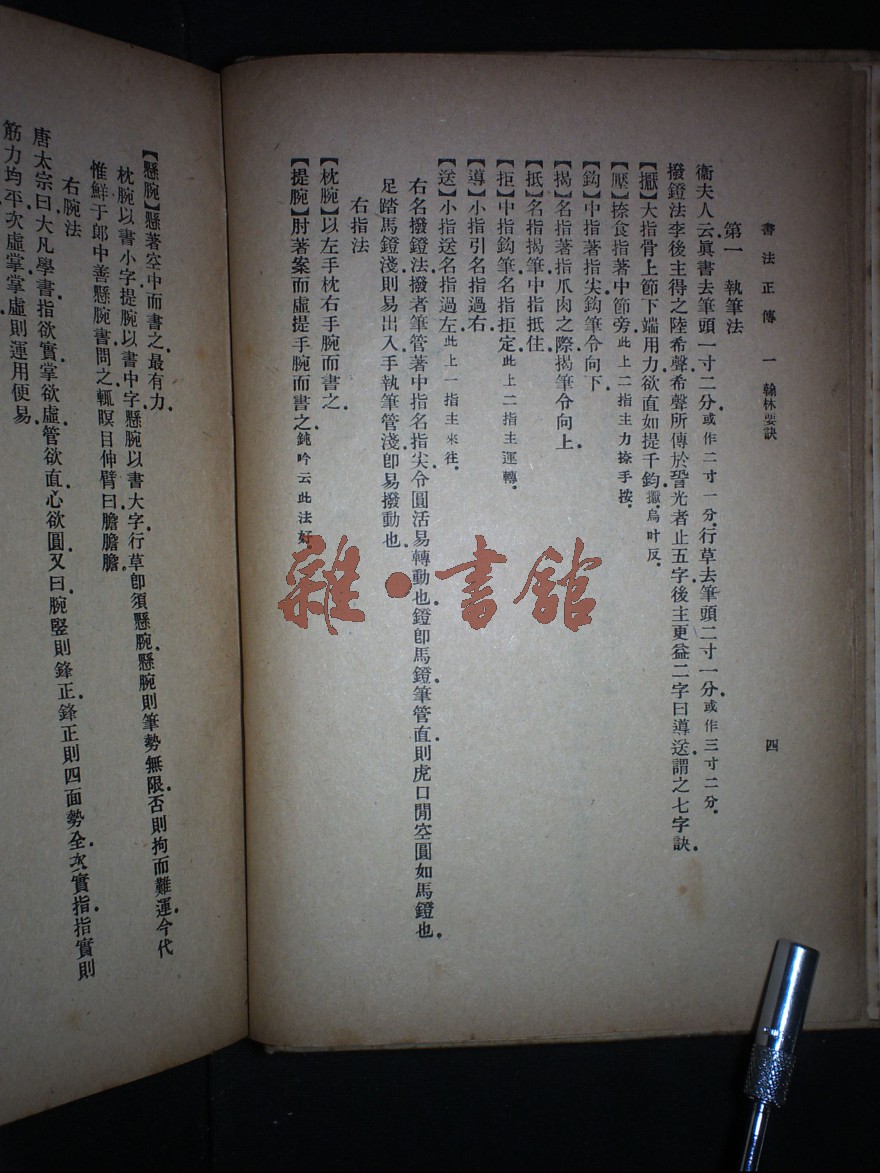 書法正傳　一　翰林要訣　四
第一　執筆法
衞夫人云眞書去筆頭一寸二分或作二寸一分行草去筆頭二寸一分或作三寸二分
撥鐙法李後主得之陸希聲希聲所傳於𧦬光者止五字後主更益二字曰導送謂之七字訣
【擫】大指骨上節下端用力欲直如提千鈞擫烏叶反
【壓】捺食指著中節旁此上二指主力捺手按
【鈎】中指著指尖鈎筆令向下
【揭】名指著指爪肉之際揭筆令向上
【抵】名指揭筆中指抵住
【拒】中指鈎筆名指拒定此上二指主運轉
【導】小指引名指過右
【送】小指送名指過左此上一指主來往
右名撥鐙法撥者筆管著中指名指尖令圓活易轉動也鐙卽馬鐙筆管直則虎口閒空圓如馬鐙也
足踏馬鐙淺則易出入手執筆管淺卽易撥動也
右指法
【枕腕】以左手枕右手腕而書之
【提腕】肘著案而虛提手腕而書之鈍吟云此法好
【懸腕】懸著空中而書之最有力
枕腕以書小字提腕以書中字懸腕以書大字行草卽須懸腕懸腕則筆勢無限否則拘而難運今代
惟鮮于郎中善懸腕書問之輒瞑目伸臂曰膽膽膽
右腕法
唐太宗曰大凡學書指欲實掌欲虛管欲直心欲圓又曰腕竪則鋒正鋒正則四面勢全次實指指實則
筋力均平次虛掌掌虛則運用便易
雜·書館